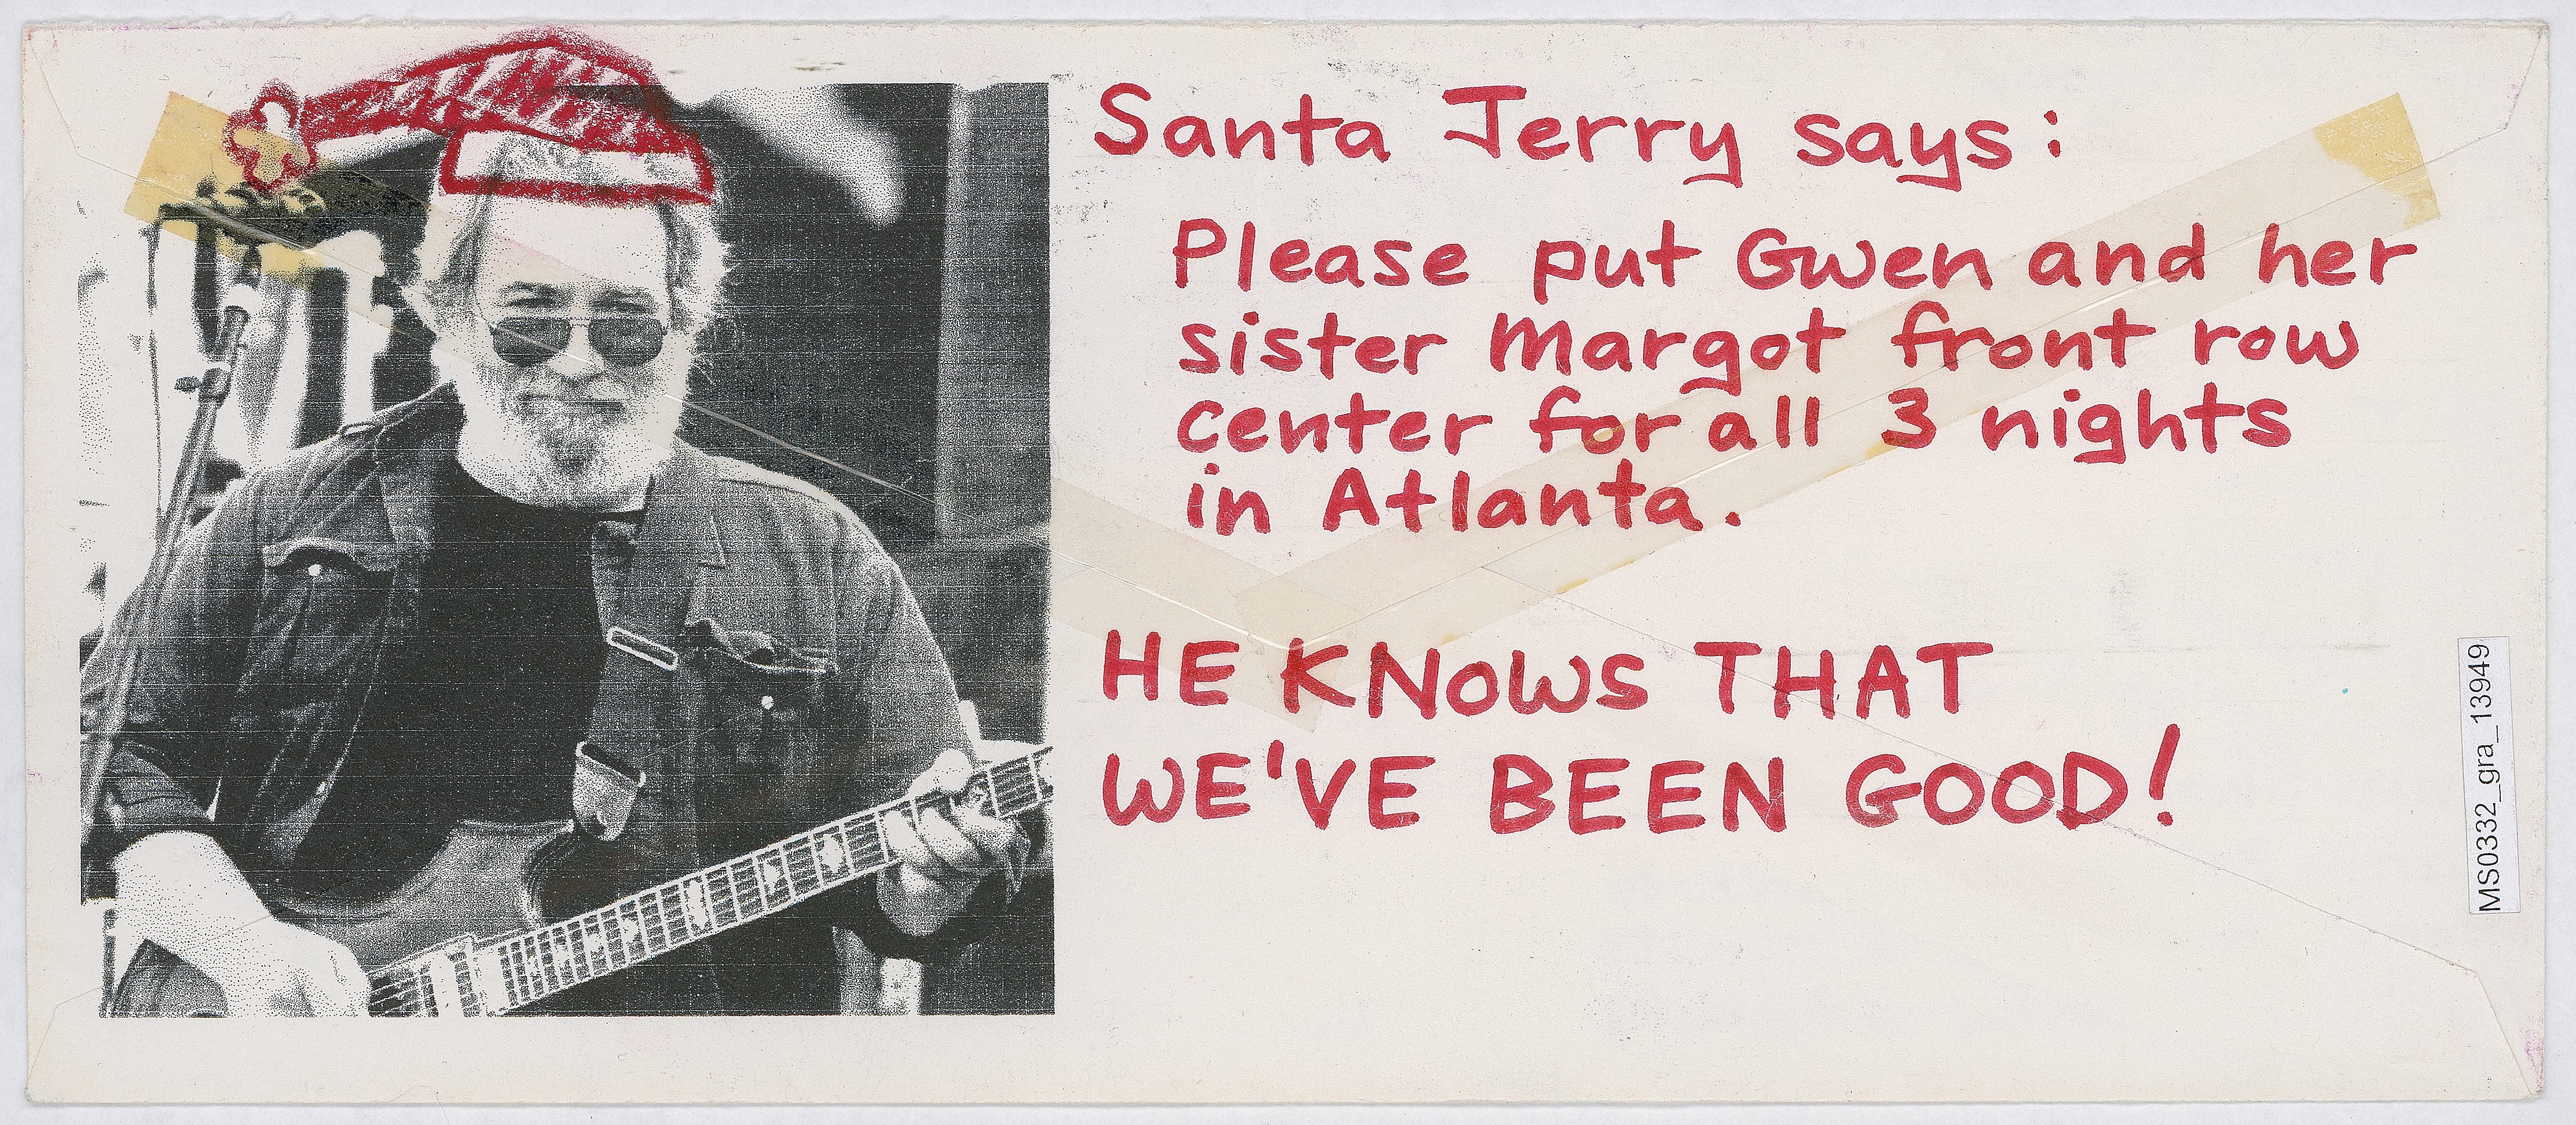 Santa Jerry says:
Please put Gwen and her
sister Margot front row
center for all 3 nights
in Atlanta.
HE KNOWS THAT
WE'VE BEEN GOOD!
MS0332_gra_13949